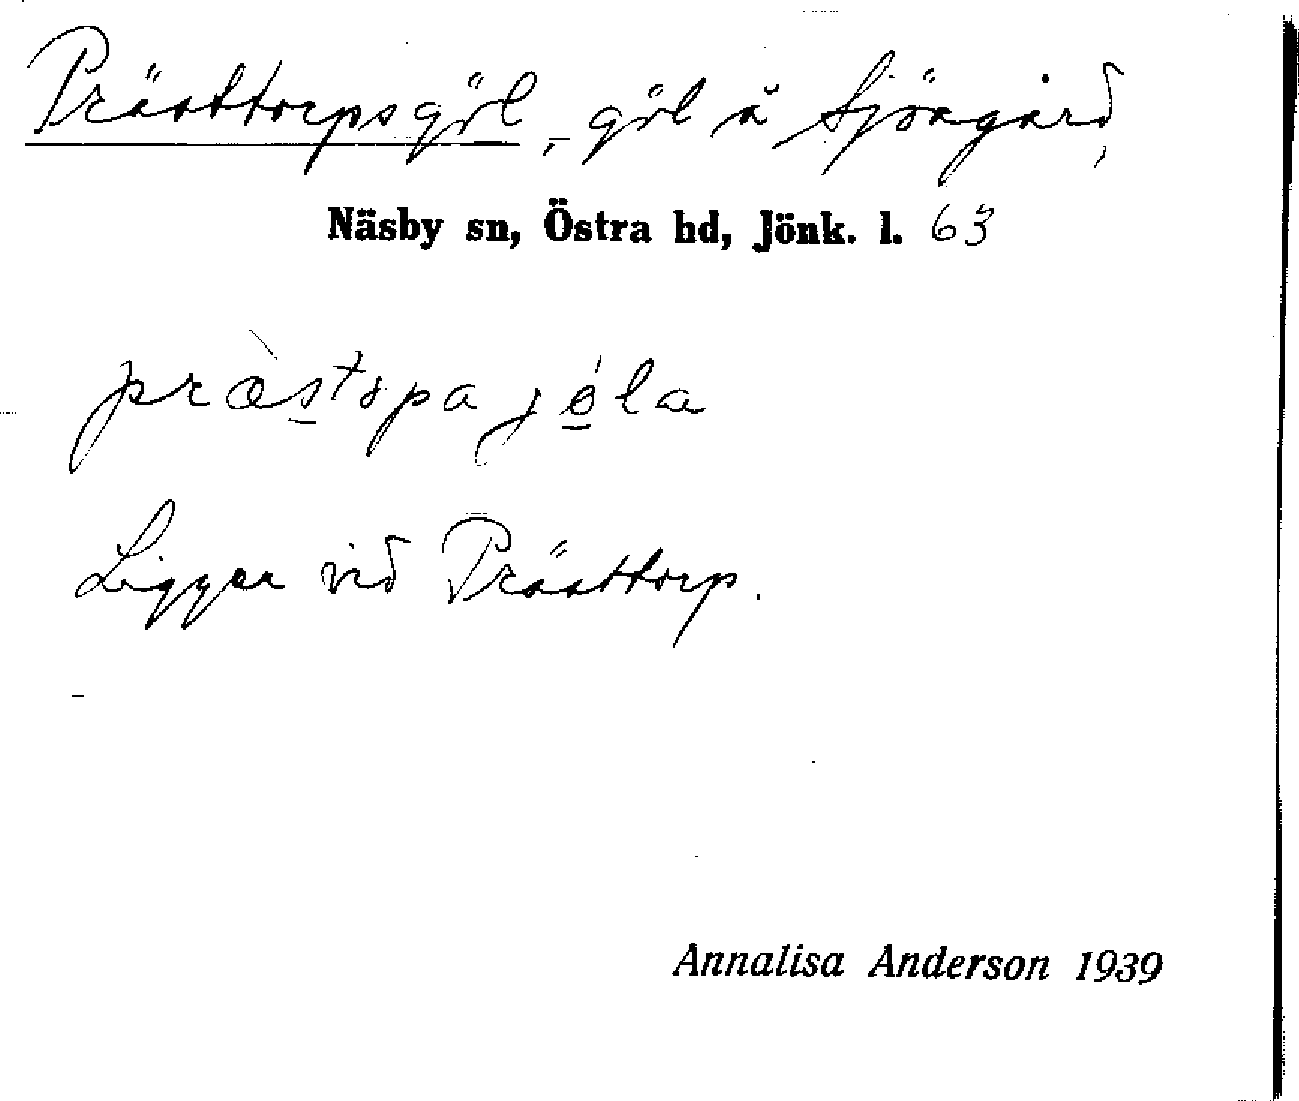 Prästtorpsgöl, göl å Sjöagård,
Näsby sn, Östra hd, Jönk. l. 63
Ligger vid Prästtorp.
Annalisa Anderson 1939